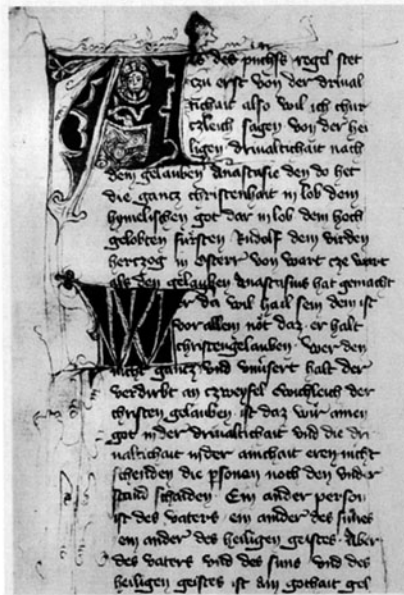 Als des puchss regel stet
czu erst von der drival
tichait also wil ich chur
czleich sagen von der hei
ligen drivaltichait nach
dem gelauben Anastasie den do het
die gancz christenhait in lob dem
hymelischen got dar in lob dem hoch
gelobten fursten Rudolf dem virden
herczog in Osterr von wart cze wart
als den gelauben Anastasius hat gemacht
Wer da wil hail sein dem ist
voor allem not daz er halt
christengelauben Wer den
nicht gancz vnd vnuersert halt der
verdirbt an czweyfel Ewichleich der
christen gelauben ist daz wir ainen
got in der drivaltichait vnd die dri
ualtichait in der ainchait eren nicht
schenden die personen noch den vnder
stand schaiden Ein ander person
ist des vaters ein ander des sunes
ein ander des heiligen geistes Aber
des vaters vnd des suns vnd des
heiligen geistes ist ain gothait gel